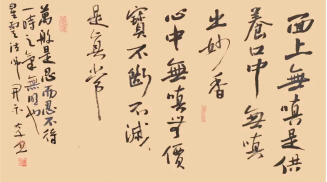 面上無嗔是供
養口中無嗔
出妙香
心中無嗔無價
寶不斷不滅
是真常
萬般是忍而忍不得
一時之氣無明
星雲法師開示